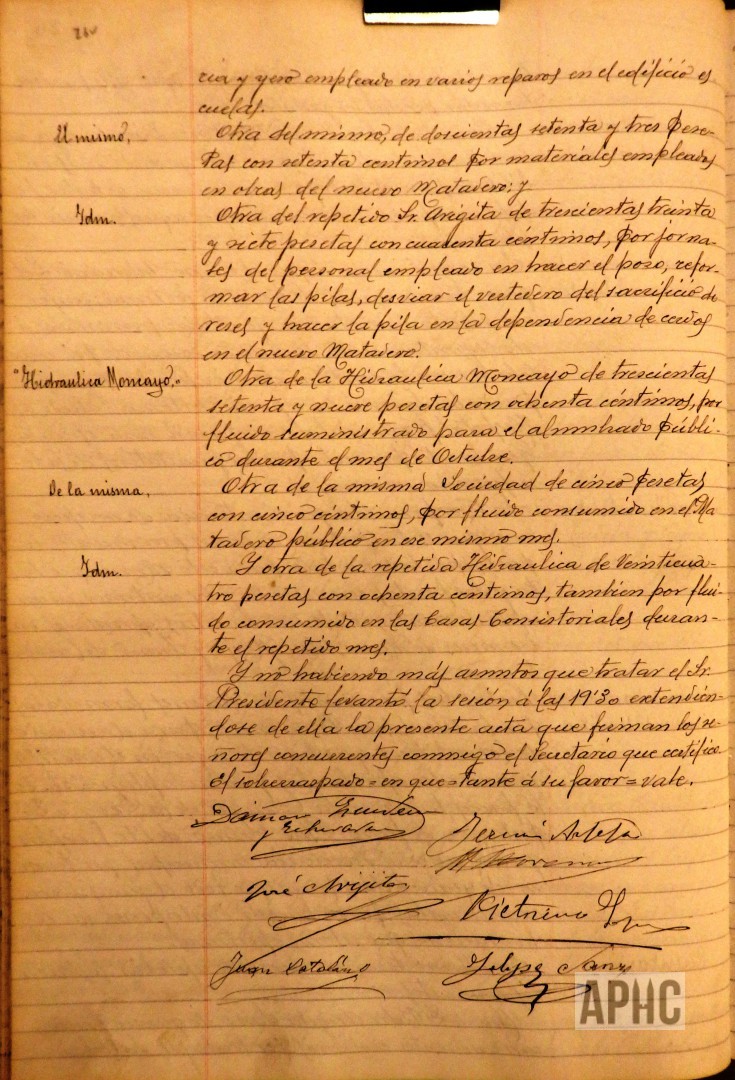 ria y yeso empleado en varios reparos en el edificio es
cuelas.
El mismo,
Otra del mismo, de doscientas setenta y tres pese-
tas con setenta centimos por materiales empleados
en obras del nuevo Matadero; y
Idm.
Otra del repetido Sr. Arigita de trescientas treinta
y siete pesetas con cuarenta céntimos, por jorna-
les del personal empleado en hacer el pozo, refor-
mar las pilas, desviar el vertedero del sacrificio de
reses y hacer la pila en la dependencia de cerdos
en el nuevo Matadero.
"Hidraulica Moncayo."
Otra de la Hidraulica Moncayo de trescientas
setenta y nueve pesetas con ochenta céntimos, por
fluido suministrado para el alumbrado públi-
co durante el mes de Octubre.
De la misma,
Otra de la misma Sociedad de cinco pesetas
con cinco céntimos, por fluido consumido en el Ma
tadero público en ese mismo mes.
Idm.
Y otra de la repetida Hidraulica de Veinticua-
tro pesetas con ochenta centimos, tambien por flui-
do consumido en las Casas-Consistoriales duran-
te el repetido mes.
Y no habiendo más asuntos que tratar el Sr.
Presidente levantó la sesión á las 19'30 extendién-
dose de ella la presente acta que firman los se-
ñores concurrentes conmigo el Secretario que certifico.
El sobrerraspado=en que=tante á su favor=vale.
José Arigita
Victorino
Juan Catalano
Felipe Sanz
APHC